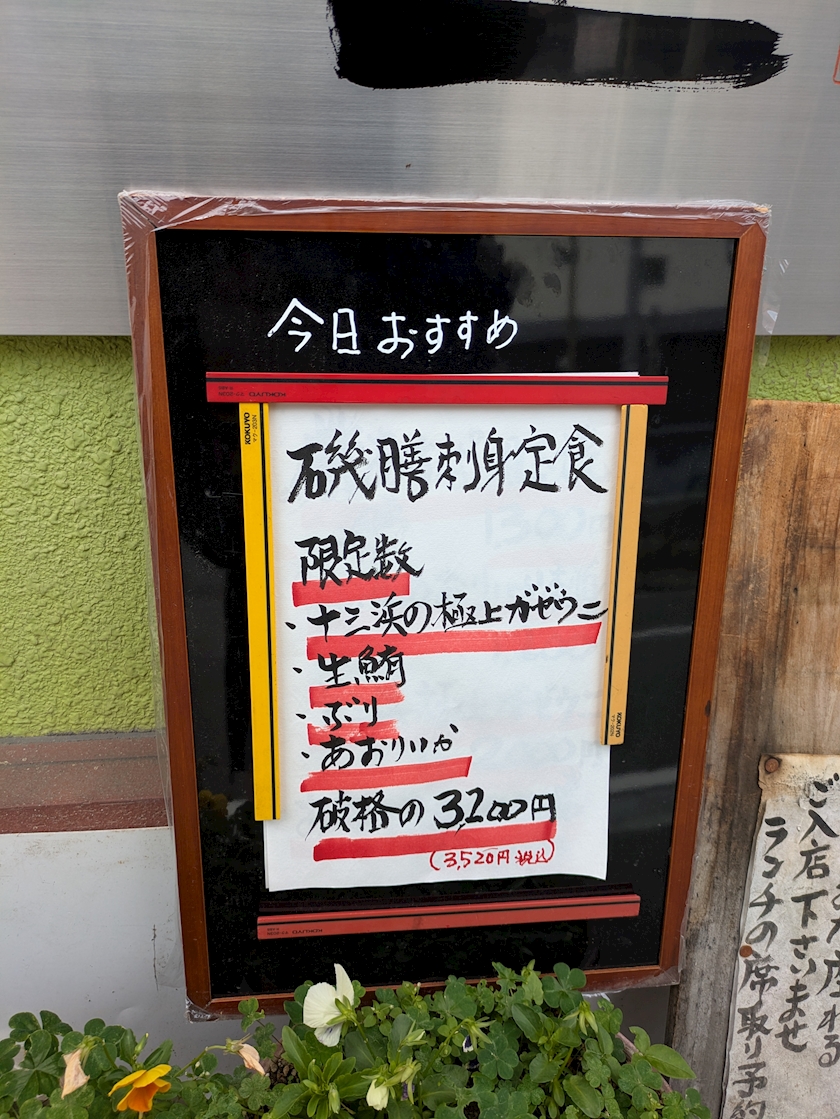 今日おすすめ
磯膳刺身定食
限定数
・十三浜の極上ガゼウニ
・生鮪
・ぶり
・あおりいか
破格の3,200円
(3,520円税込)
KOKUYO
KOKUYO
ご入店下さいませ
ランチの席取り予約